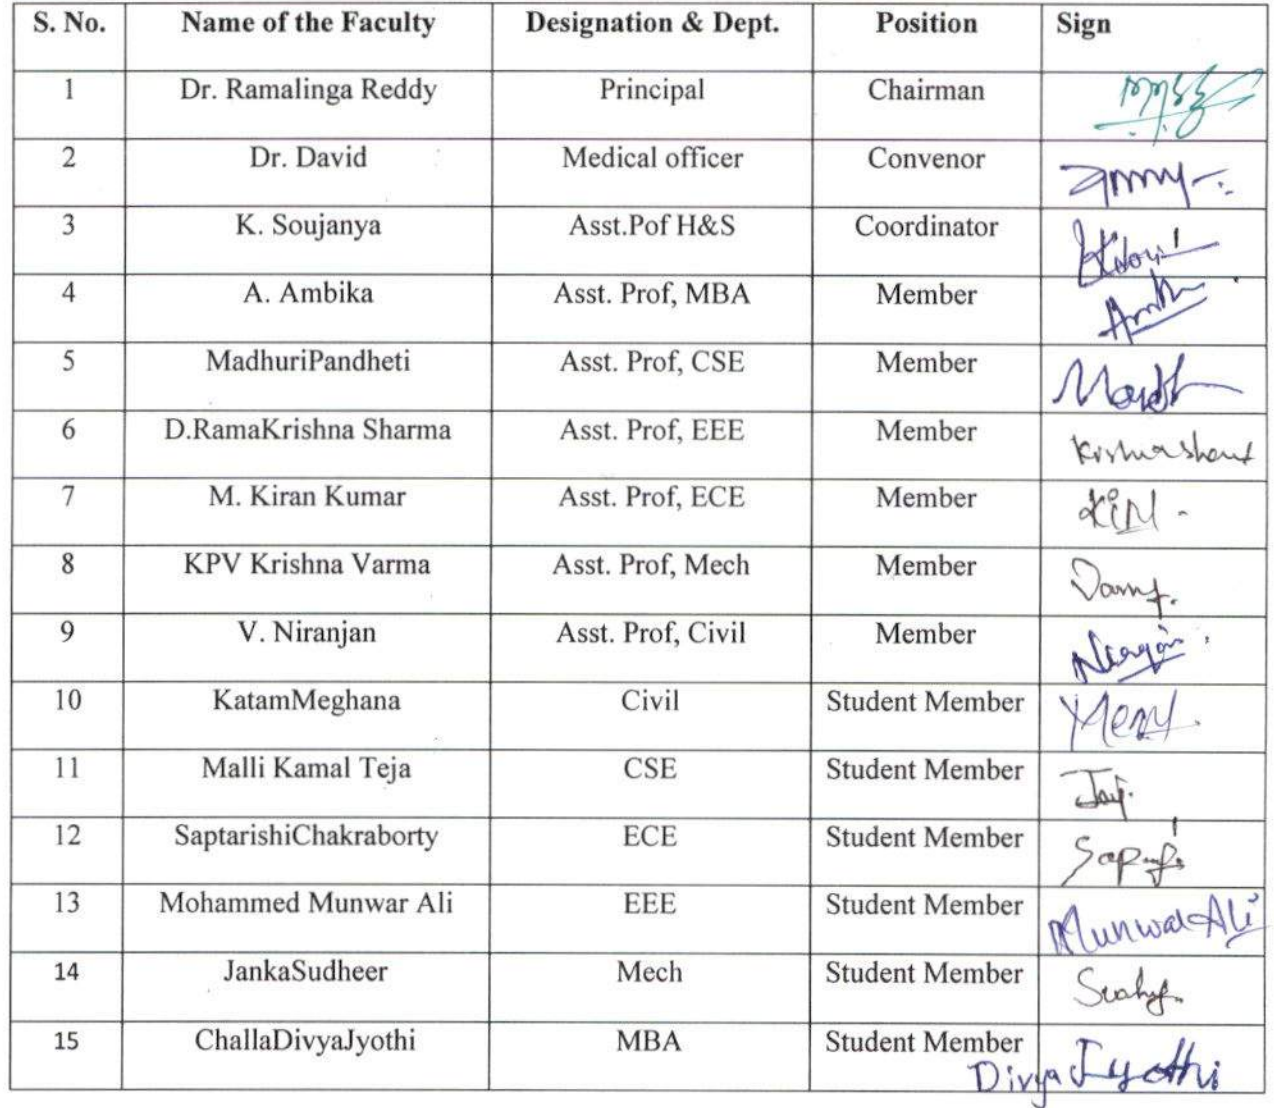 S. No. Name of the Faculty Designation & Dept. Position Sign
1 Dr. Ramalinga Reddy Principal Chairman
2 Dr. David Medical officer Convenor
3 K. Soujanya Asst.Pof H&S Coordinator
4 A. Ambika Asst. Prof, MBA Member
5 MadhuriPandheti Asst. Prof, CSE Member
6 D.RamaKrishna Sharma Asst. Prof, EEE Member
7 M. Kiran Kumar Asst. Prof, ECE Member
8 KPV Krishna Varma Asst. Prof, Mech Member
9 V. Niranjan Asst. Prof, Civil Member
10 KatamMeghana Civil Student Member
11 Malli Kamal Teja CSE Student Member
12 SaptarishiChakraborty ECE Student Member
13 Mohammed Munwar Ali EEE Student Member Munwar Ali
14 JankaSudheer Mech Student Member
15 ChallaDivyaJyothi MBA Student Member
Divya Jyothi